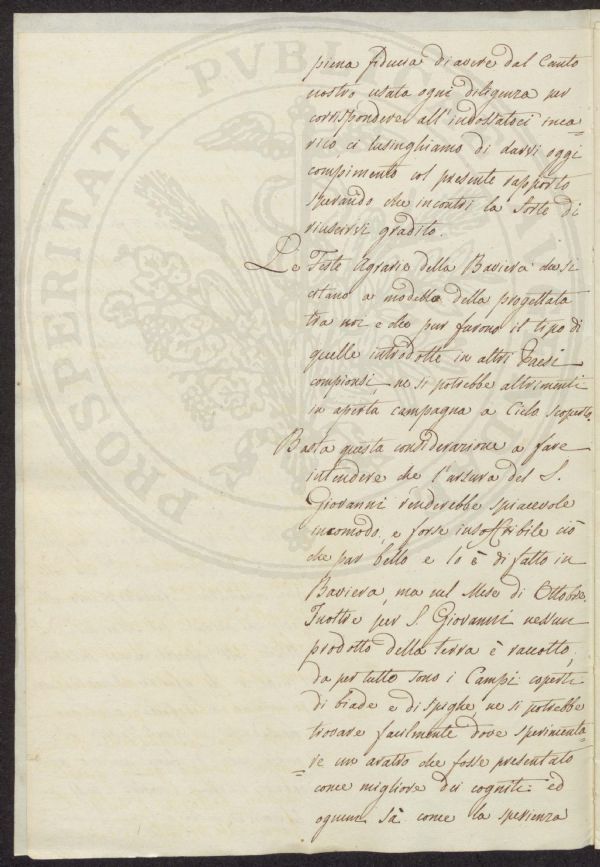 piena fiducia di avere dal Canto
nostro usata ogni diligenza per
corrispondere all'indossatoci inca=
rico, ci lusinghiamo di darvi oggi
compimento col presente rapporto
sperando che incontri la sorte di
riuscirvi gradito.
Le Feste Agrarie della Baviera che si
citano a modello della progettata
tra noi e che pur furono il tipo di
quelle introdotte in altri Paesi
compionsi, ne si potrebbe altrimenti
in aperta campagna a Cielo scoperto.
Basta questa considerazione a fare
intendere che l'arsura del S.
Giovanni renderebbe spiacevole
incomodo, e forse insoffribile ciò
che par bello e lo è di fatto in
Baviera, ma nel Mese di Ottobre.
Inoltre per S. Giovanni nessun
prodotto della terra è raccolto,
da per tutto sono i Campi coperti
di biade e di spighe, ne si potrebbe
trovare facilmente dove sperimenta=
=re un aratro che fosse presentato
come migliore dei cogniti: ed
ognun sà come la sperienza
PROSPERITATI PVBLICAE